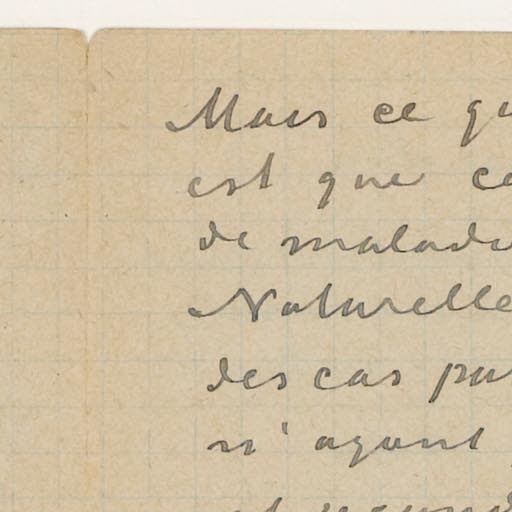 Mais ce qu
est que ce
de maladi
Naturelle
des cas pu
n'ayant
et